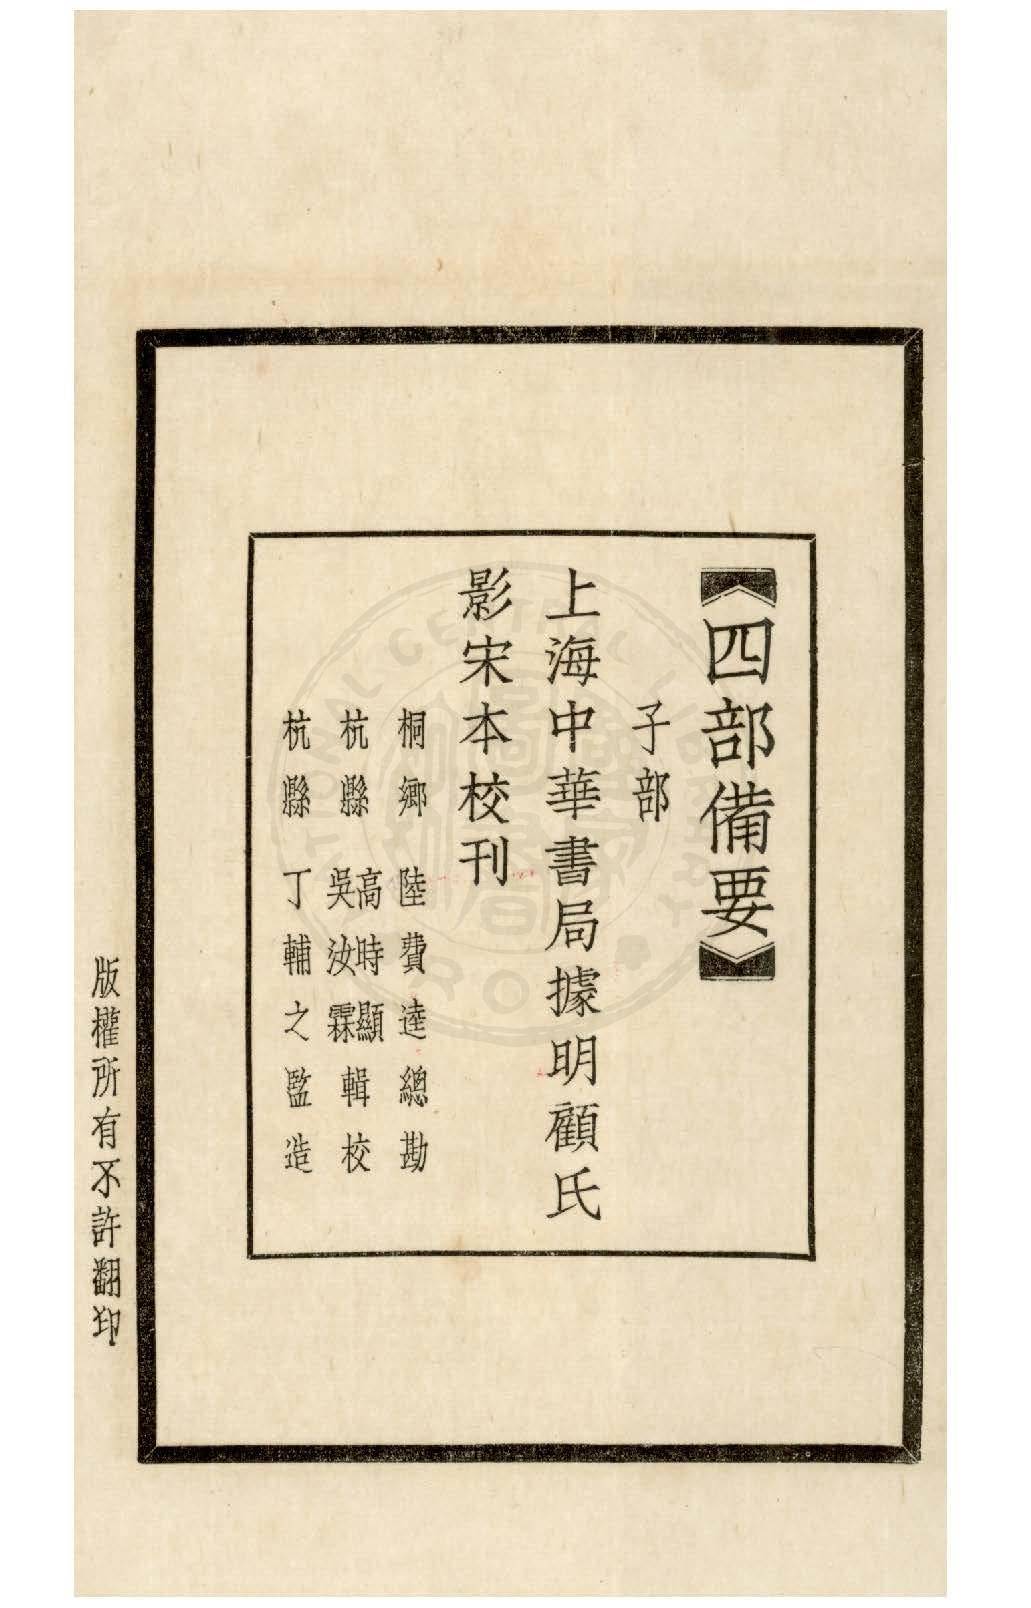 【四部備要】
子部
上海中華書局據明顧氏
影宋本校刊
桐鄉 陸費逵總勘
杭縣 高時顯 吳汝霖 輯校
杭縣 丁輔之監造
版權所有不許翻印
NATIONAL CENTRAL LIBRARY